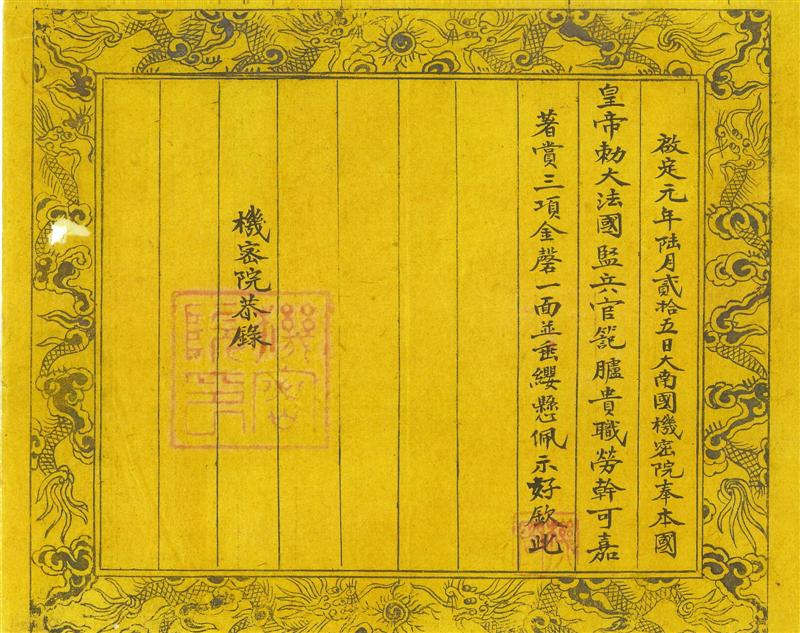 啟定元年陸月貳拾五日大南國機密院奉本國
皇帝勅大法國監兵官箢臚貴職勞幹可嘉
著賞三項金磬一面並垂纓懸佩示好欽此
機密院恭錄
機密院印